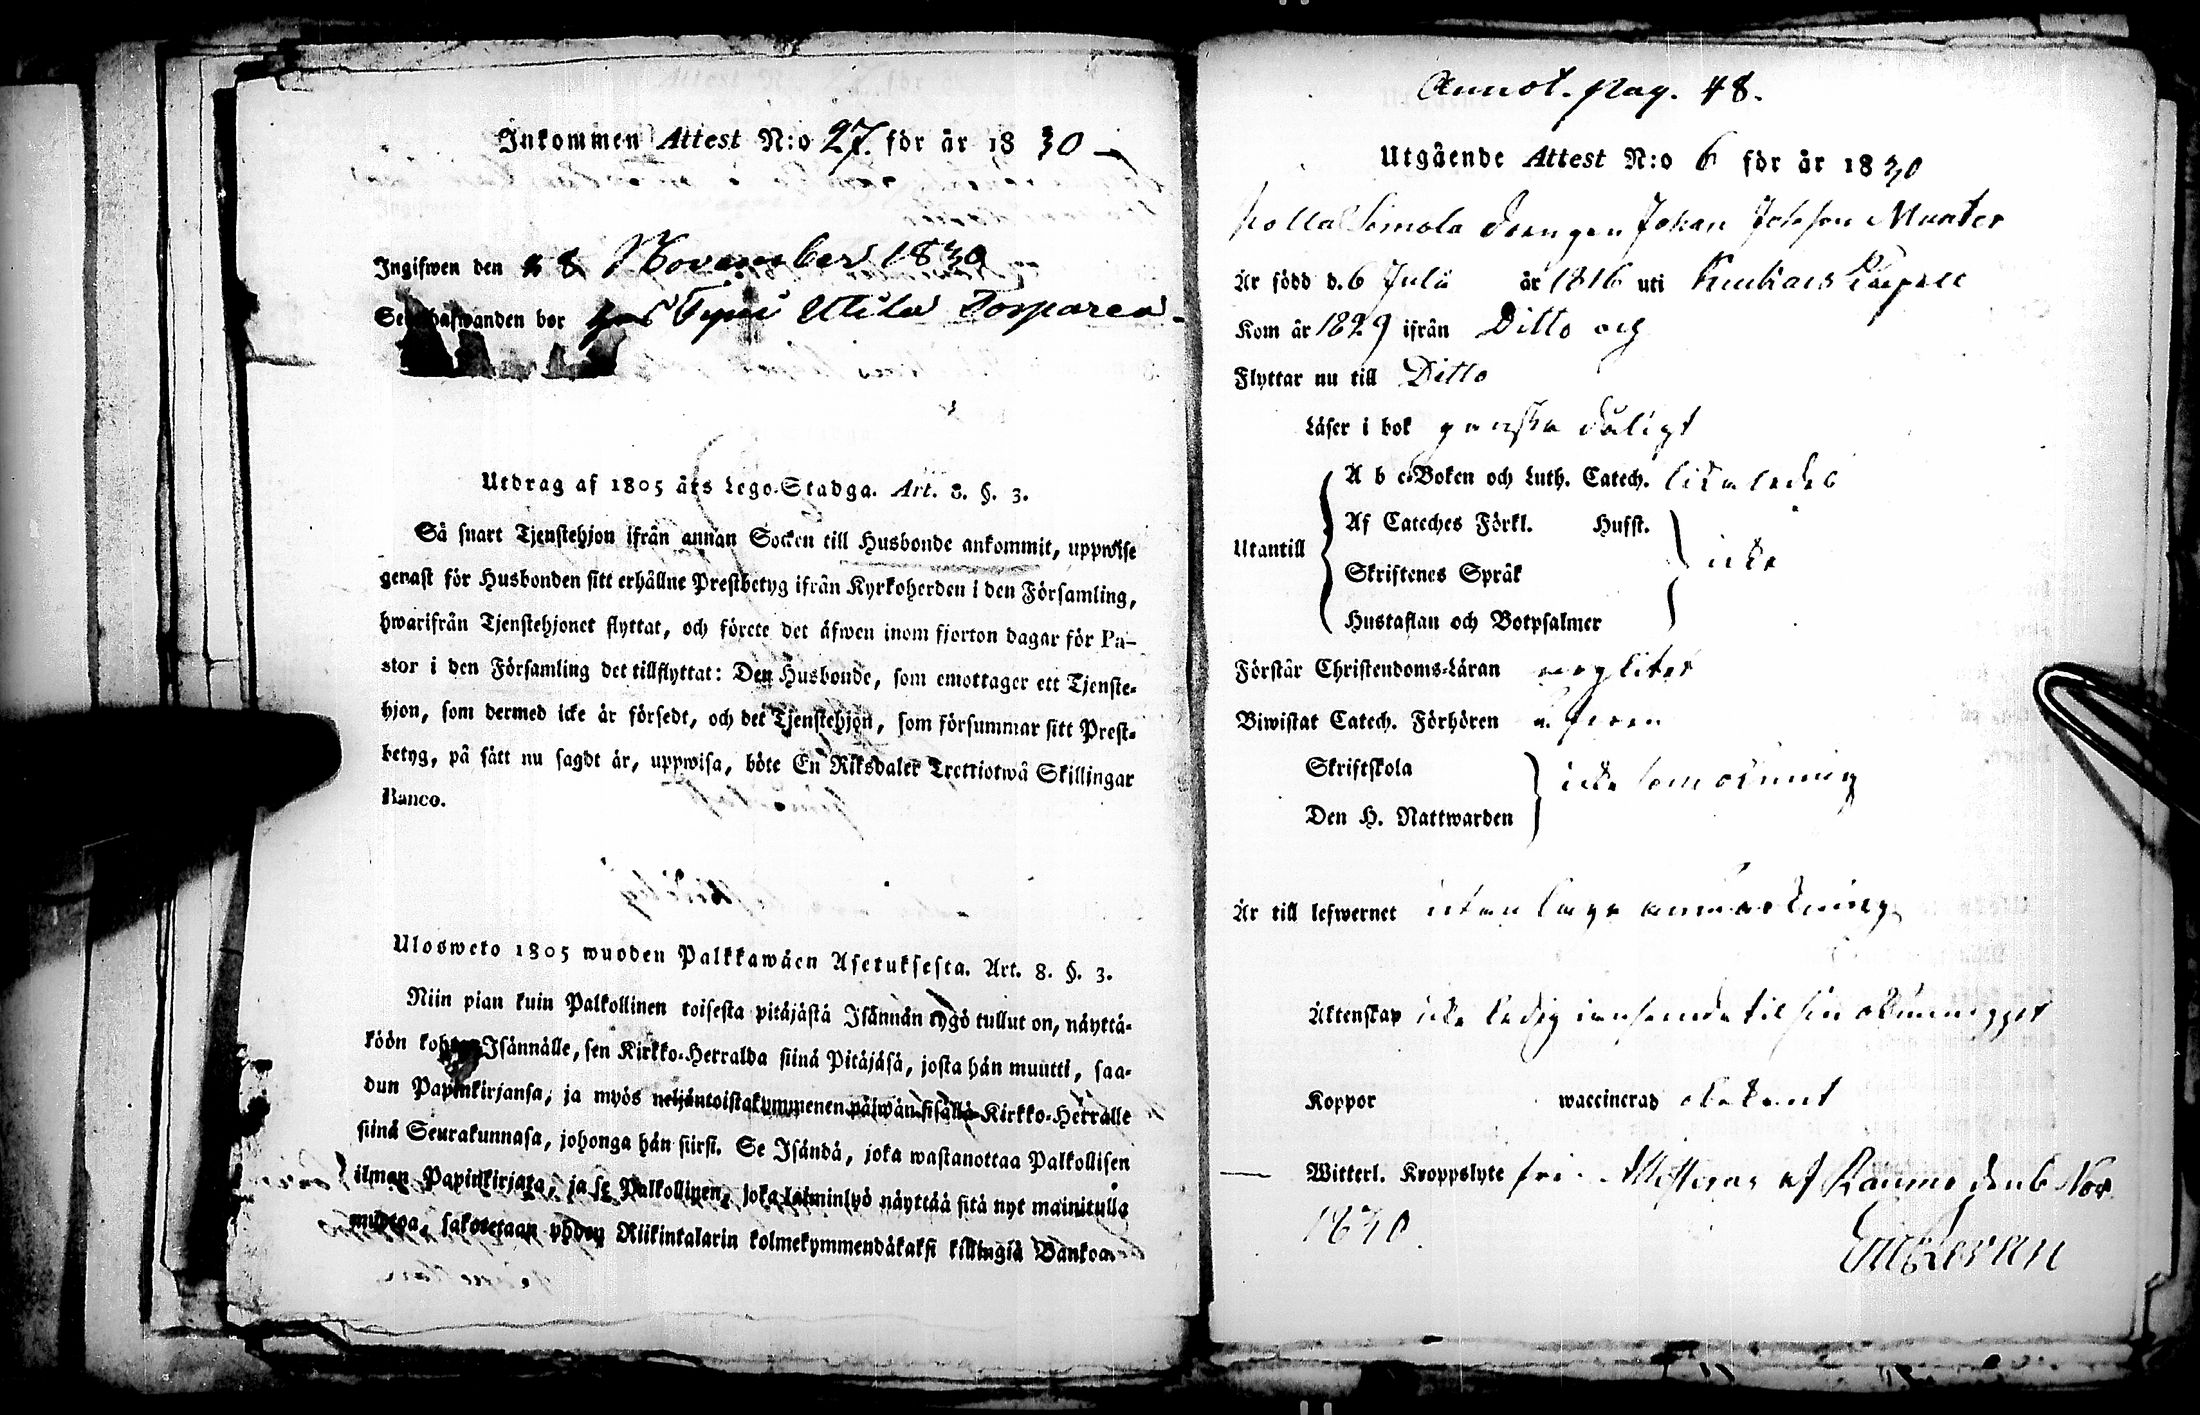 Inkommen Attest N:o 27. för år 1830
Ingifwen den 8 November 1830
bor hos Torparen
Utdrag af 1805 års Lego-Stadga. Art. 8. §. 3.
Så snart Tjenstehjon ifrån annan Socken till Husbonde ankommit, uppwise
genast för Husbonden sitt erhållne Prestbetyg ifrån Kyrkoherden i den Församling,
hwarifrån Tjenstehjonet flyttat, och förete det äfwen inom fjorton dagar för Pa-
stor i den Församling det tillflyttat: Den Husbonde, som emottager ett Tjenste-
hjon, som dermed icke är försedt, och det Tjenstehjon, som försummar sitt Prest-
betyg, på sätt nu sagdt är, uppwisa, böte En Riksdaler Trettiotwå Skillingar
Banco.
Ulosweto 1805 wuoden Palkkawäen Asetuksesta. Art. 8. §. 3.
Niin pian kuin Palkollinen toisesta pitäjästä Isännän tygö tullut on, näyttä-
köön kohta Isännälle, sen Kirkko-Herralda siinä Pitäjäsä, josta hän muutti, saa-
dun Papinkirjansa, ja myös neljäntoistakymmenen päiwän sisällä Kirkko-Herralle
siinä Seurakunnasa, johonga hän siirsi. Se Isändä, joka wastanottaa Palkollisen
ilman Papinkirjata, ja se Palkollinen, joka laiminlyö näyttää sitä nyt mainitulla
muotoa, sakotetaan yhden Riikintalarin kolmekymmendäkaksi killingiä Bankoa.
Annot. pag. 48.
Utgående Attest N:o 6 för år 1830
drengen Johan Munter
Är född d. 6 Julii år 1816 uti Kapell
Kom år 1829 ifrån Ditto och
Flyttar nu till Ditto
Läser i bok ganska dåligt
Utantill
A b c-Boken och Luth. Catech. likaledes
Af Cateches Förkl. Husst.
Skriftenes Språk icke
Hustaflan och Botpsalmer
Förstår Christendoms-Läran
Biwistat Catech. Förhören
Skriftskola
Den H. Nattwarden
icke som okunnig
Är till lefwernet utan laga anmärkning
Äktenskap icke ledig i anseende til sin okunnighet
Koppor waccinerad obekant
Witterl. Kroppslyte fri. Attesteras af Raumo den 6 Nov.
1830.